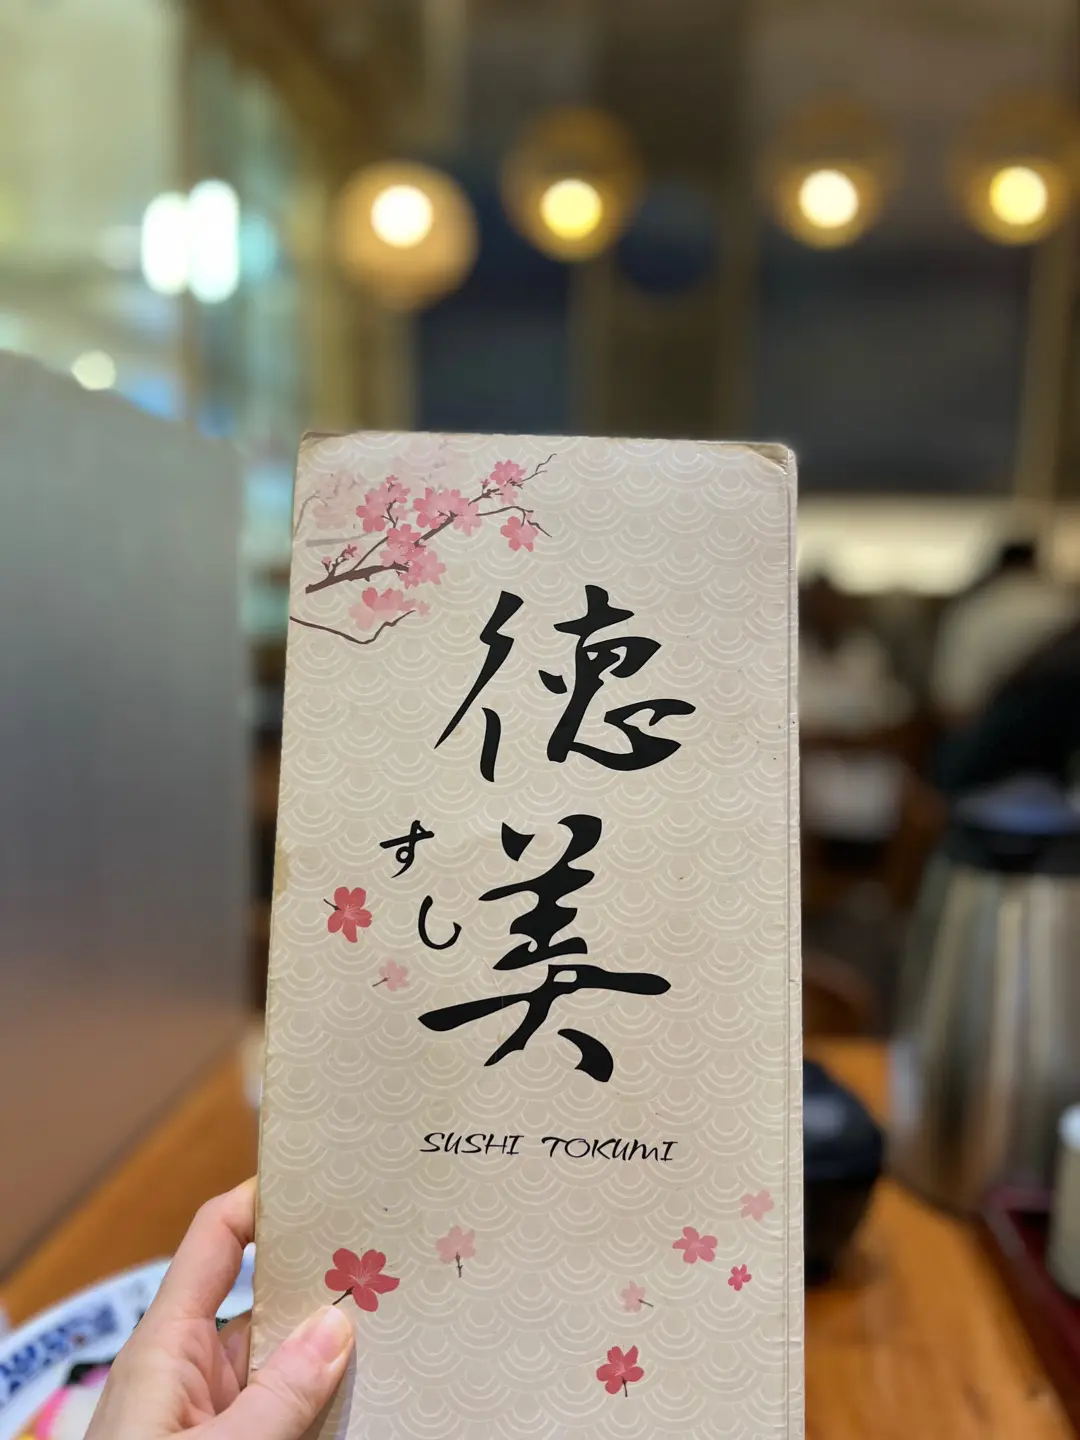 徳美
すし
SUSHI TOKUMI